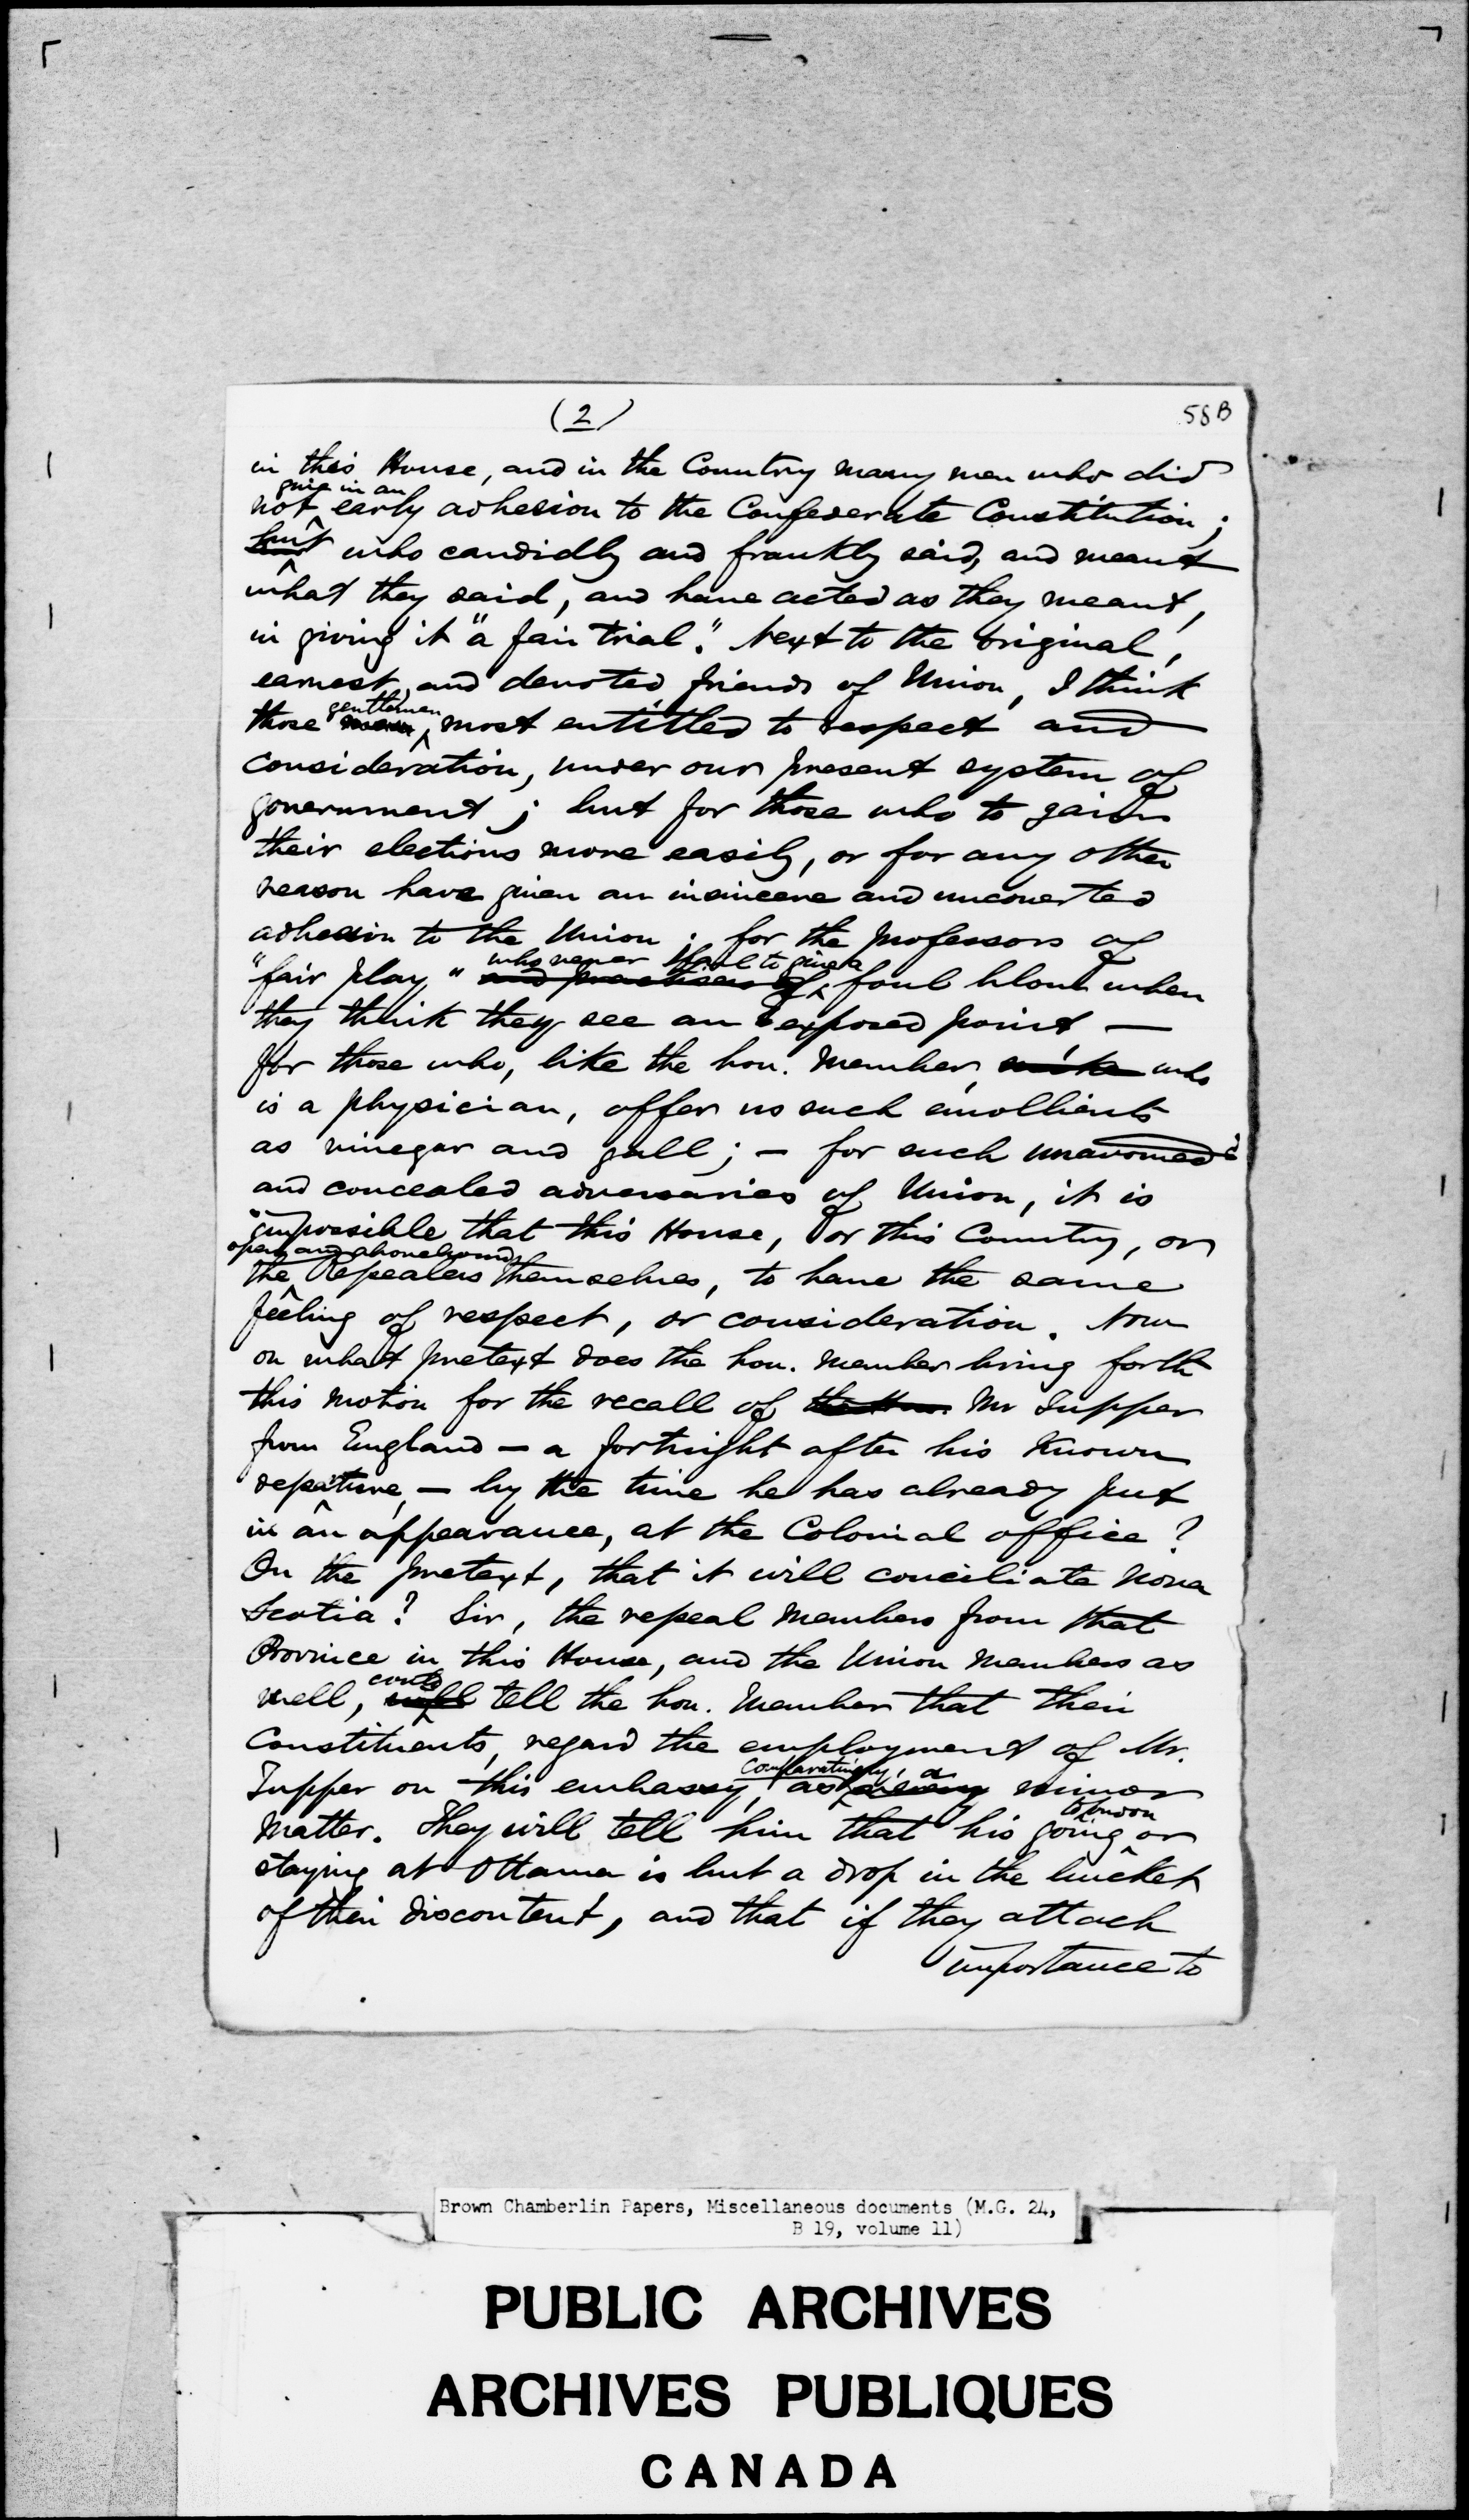 (2)
58B
in this House, and in the Country many men who did
give in an
not early adhesion to the Confederate Constitution;
but who candidly and frankly said, and meant
what they said, and have acted as they meant,
in giving it "a fair trial." Next to the original,
earnest, and devoted friends of Union, I think
gentlemen
those men, most entitled to respect and
consideration, under our present system of
government; but for those who to gain
their elections more easily, or for any other
reason have given an insincere and unconverted
adhesion to the Union; for the professors of
who never fail to give a
"fair play" and practisers of foul blow when
they think they see an exposed point —
for those who, like the hon. Member, who
is a physician, offer us such emollients
as vinegar and gall; — for such unavowed
and concealed adversaries of Union, it is
impossible that this House, or this Country, or
open and aboveboard
the Repealers themselves, to have the same
feeling of respect, or consideration. Now
on what pretext does the hon. Member bring forth
this motion for the recall of the Hon. Mr Tupper
from England — a fortnight after his known
departure, — by the time he has already put
in an appearance, at the Colonial office?
On the pretext, that it will conciliate Nova
Scotia? Sir, the repeal Members from that
Province in this House, and the Union Members as
could
well, will tell the hon. Member that their
Constituents, regard the employment of Mr.
Comparatively, a
Tupper on this embassy, as minor
to London
Matter. They will tell him that his going or
staying at Ottawa is but a drop in the bucket
of their discontent, and that if they attach
importance to
Brown Chamberlin Papers, Miscellaneous documents (M.G. 24,
B 19, volume 11)
PUBLIC ARCHIVES
ARCHIVES PUBLIQUES
CANADA